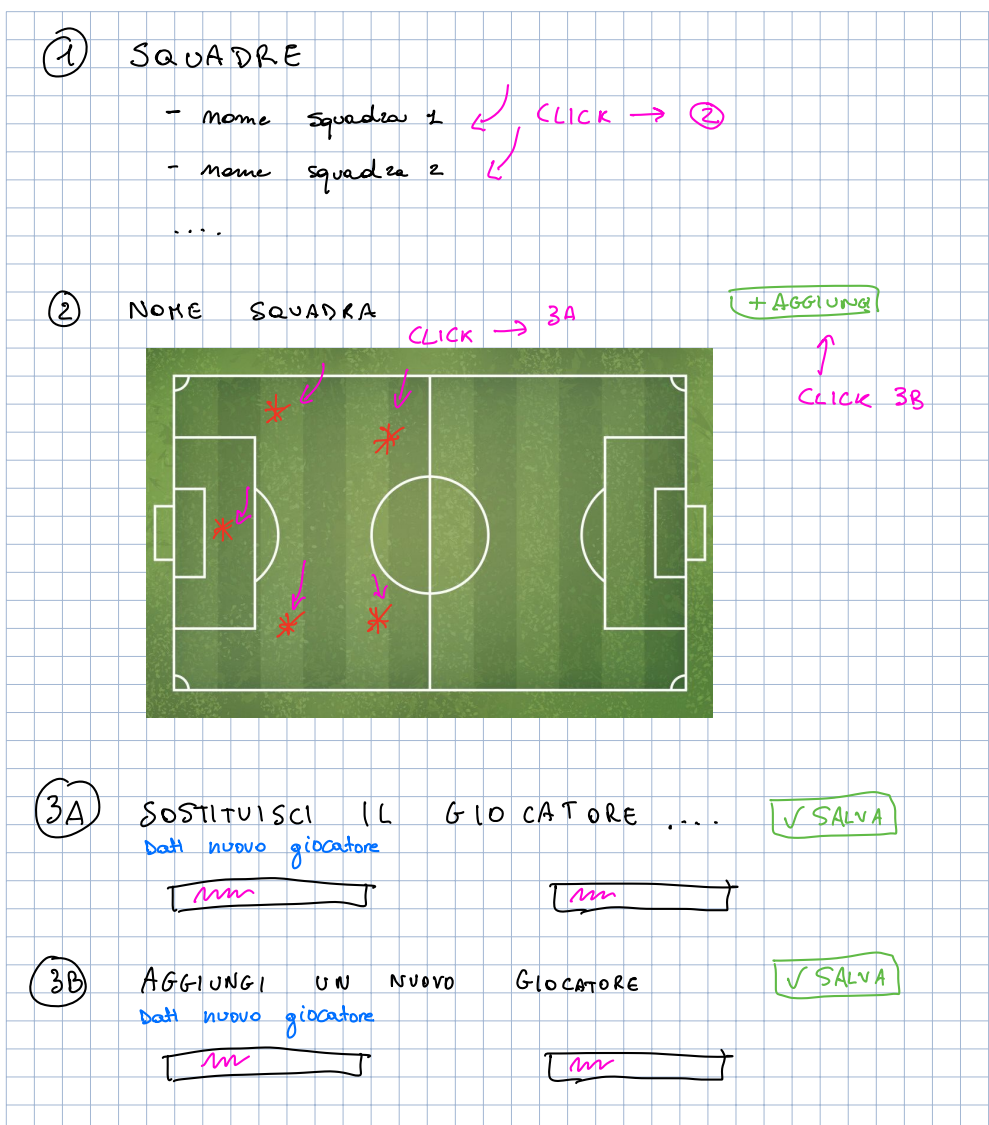 1 SQUADRE
- nome squadra 1 CLICK → 2
- nome squadra 2
....
2 NOME SQUADRA + AGGIUNGI
CLICK → 3A
CLICK 3B
3A SOSTITUISCI IL GIOCATORE .... √ SALVA
Dati nuovo giocatore
3B AGGIUNGI UN NUOVO GIOCATORE √ SALVA
Dati nuovo giocatore